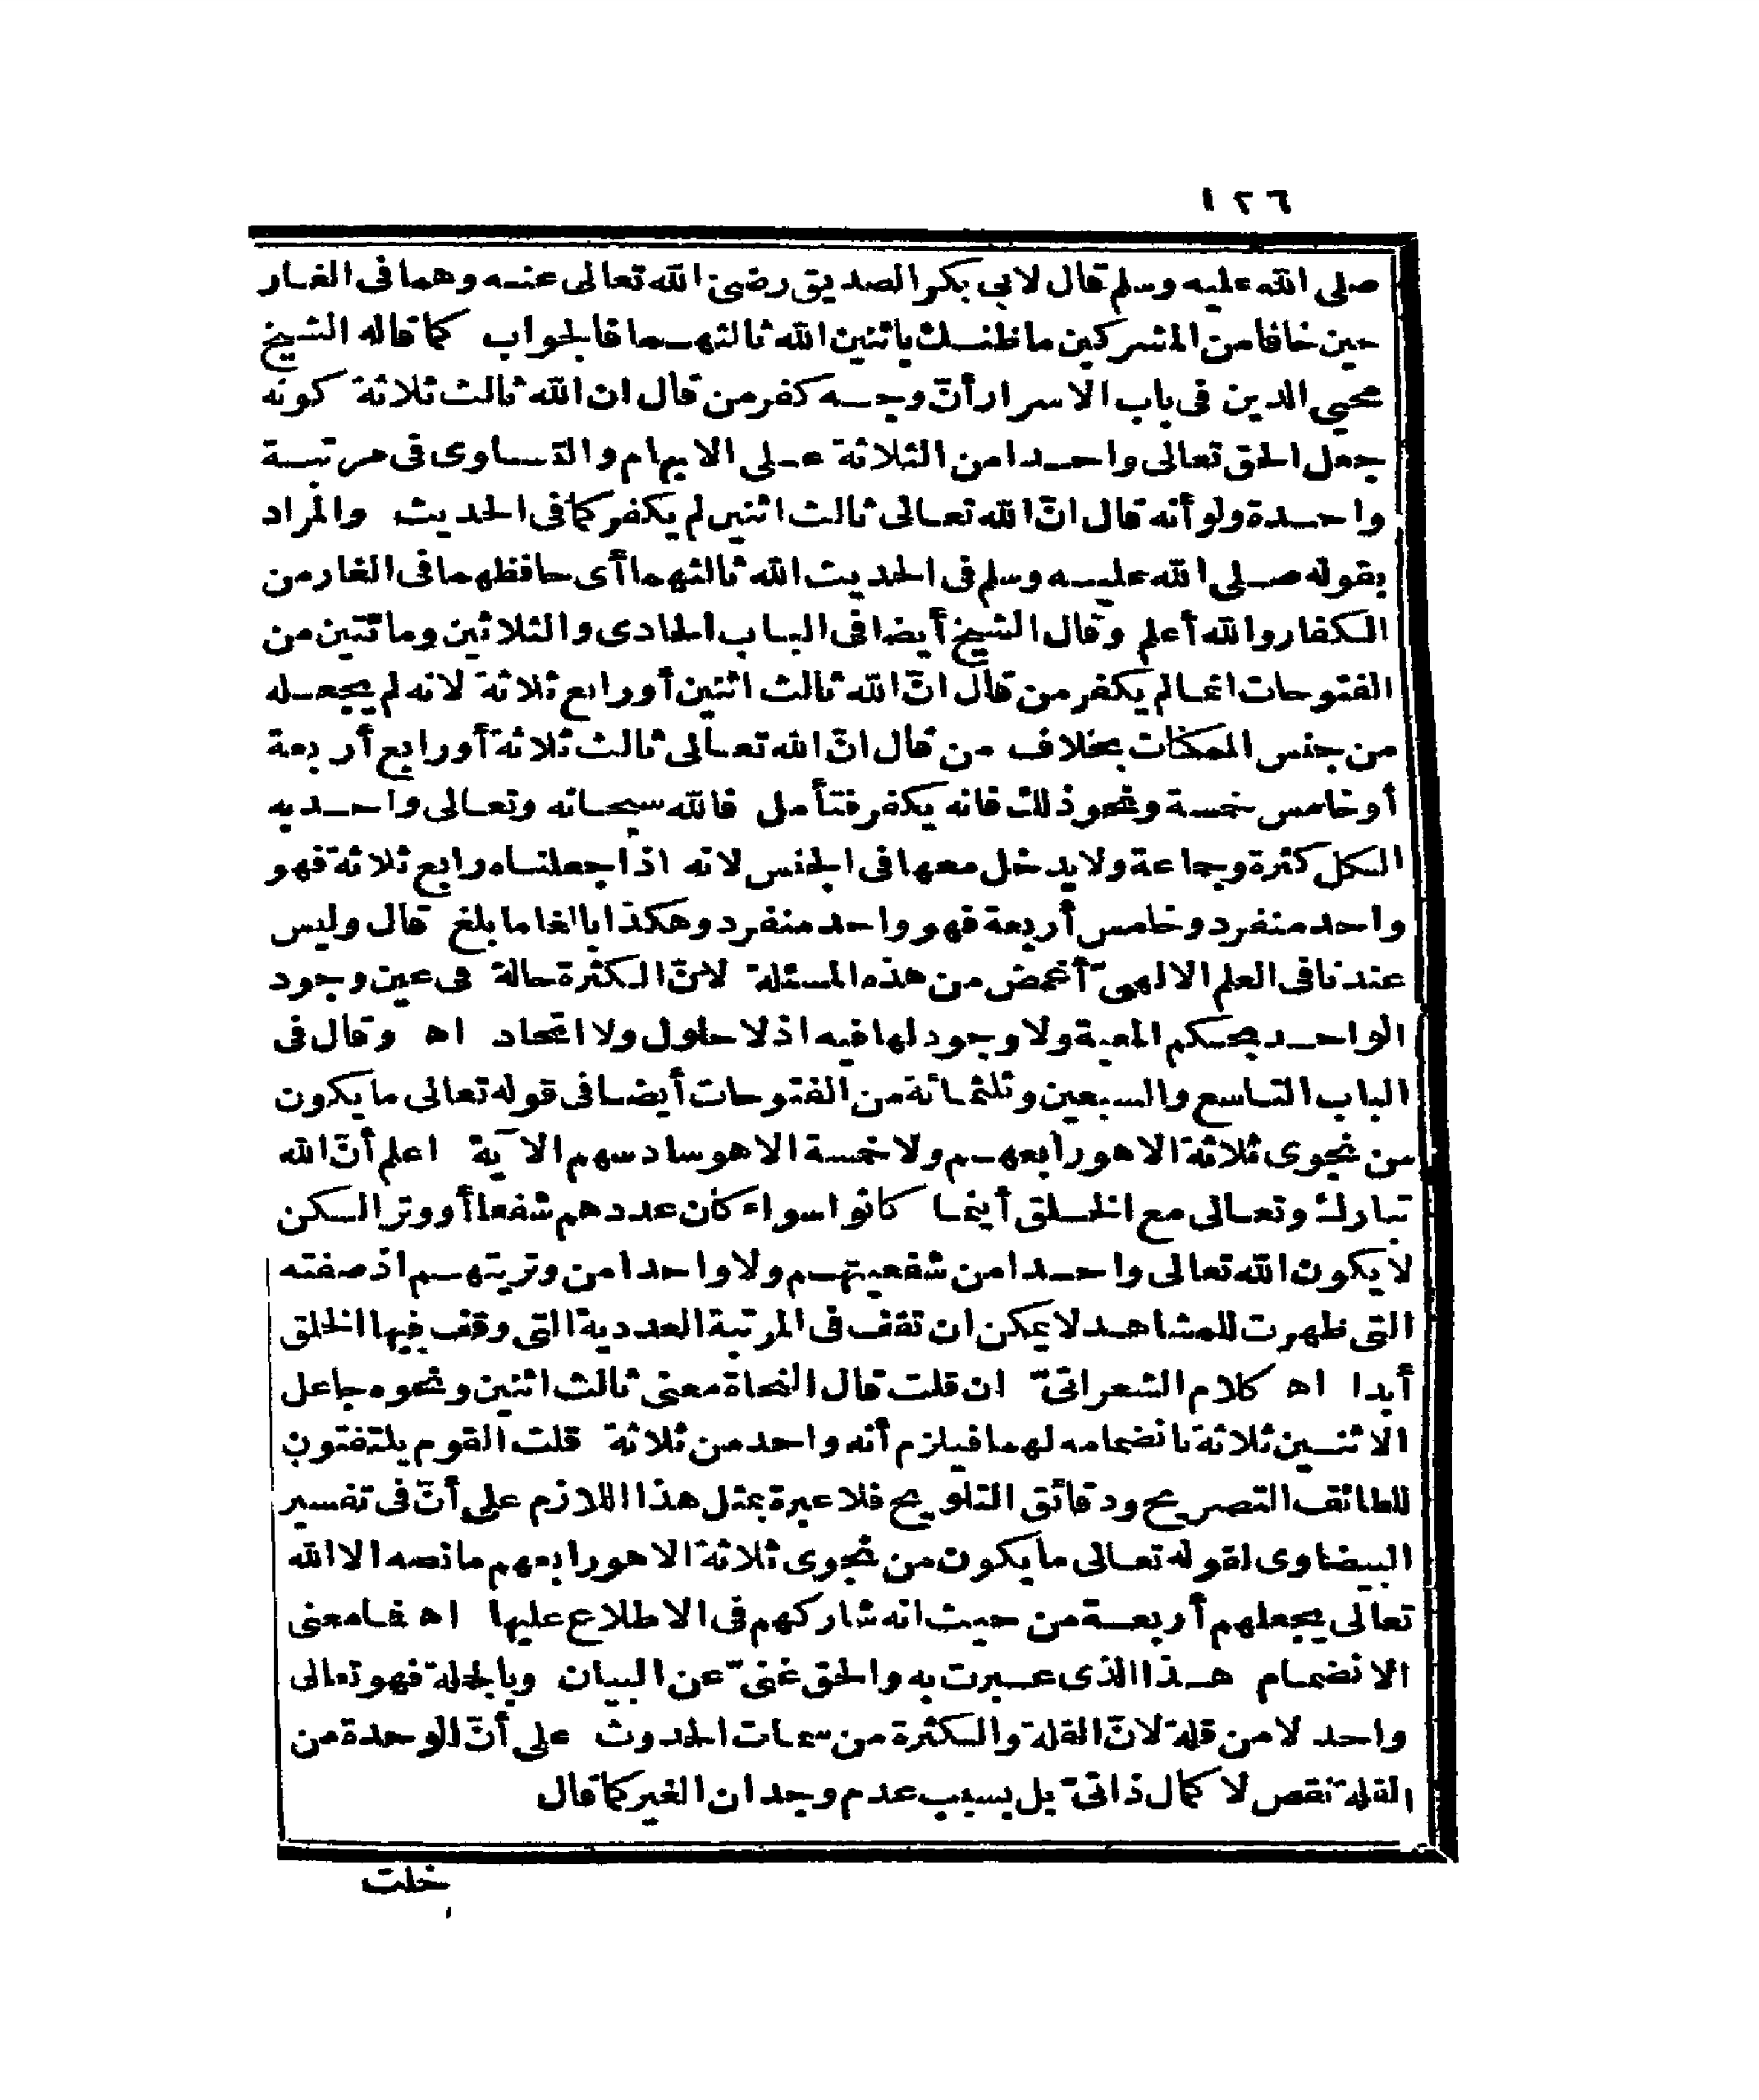 ١٢٦
صلى الله عليه وسلم قال لابي بكر الصديق رضى الله تعالى عنه وهما فى الغار
حين خافا من المشركين ما ظنك باثنين الله ثالثهما فالجواب كما قاله الشيخ
محيي الدين فى باب الاسرار أنّ وجه كفر من قال ان الله ثالث ثلاثة كونه
جعل الحق تعالى واحدا من الثلاثة على الابهام والتساوى فى مرتبة
واحدة ولو أنه قال انّ الله تعالى ثالث اثنين لم يكفر كما فى الحديث والمراد
بقوله صلى الله عليه وسلم فى الحديث الله ثالثهما أى حافظهما فى الغار من
الكفار والله أعلم وقال الشيخ أيضا فى الباب الحادى والثلاثين ومائتين من
الفتوحات انما لم يكفر من قال انّ الله ثالث اثنين أو رابع ثلاثة لانه لم يجعله
من جنس الممكنات بخلاف من قال انّ الله تعالى ثالث ثلاثة أو رابع أربعة
أو خامس خمسة ونحو ذلك فانه يكفر فتأمل فالله سبحانه وتعالى واحد به
الكل كثرة وجماعة ولا يدخل معها فى الجنس لانه اذا جعلناه رابع ثلاثة فهو
واحد منفرد وخامس أربعة فهو واحد منفرد وهكذا بالغا ما بلغ قال وليس
عندنا فى العلم الالهىّ أغمض من هذه المسئلة لانّ الكثرة حالة فى عين وجود
الواحد بحكم المعية ولا وجود لها فيه اذ لا حلول ولا اتحاد اه وقال فى
الباب التاسع والسبعين وثلثمائة من الفتوحات أيضا فى قوله تعالى ما يكون
من نجوى ثلاثة الا هو رابعهم ولا خمسة الا هو سادسهم الآية اعلم أنّ الله
تبارك وتعالى مع الخلق أينما كانوا سواء كان عددهم شفعا أو وترا لكن
لا يكون الله تعالى واحدا من شفعيتهم ولا واحدا من وتريتهم اذ صفته
التى ظهرت للمشاهد لا يمكن ان تقف فى المرتبة العددية التى وقف فيها الخلق
أبدا اه كلام الشعرانىّ ان قلت قال النحاة معنى ثالث اثنين ونحوه جاعل
الاثنين ثلاثة بانضمامه لهما فيلزم أنه واحد من ثلاثة قلت القوم يلتفتون
للطائف التصريح ودقائق التلويح فلا عبرة بمثل هذا اللازم على أنّ فى تفسير
البيضاوى لقوله تعالى ما يكون من نجوى ثلاثة الا هو رابعهم ما نصه الا الله
تعالى يجعلهم أربعة من حيث انه شاركهم فى الاطلاع عليها اه فما معنى
الانضمام هذا الذى عبرت به والحق غنىّ عن البيان وبالجملة فهو تعالى
واحد لا من قلة لانّ القلة والكثرة من سمات الحدوث على أنّ الوحدة من
القلة نقص لا كمال ذاتىّ بل بسبب عدم وجدان الغير كما قال
خلت